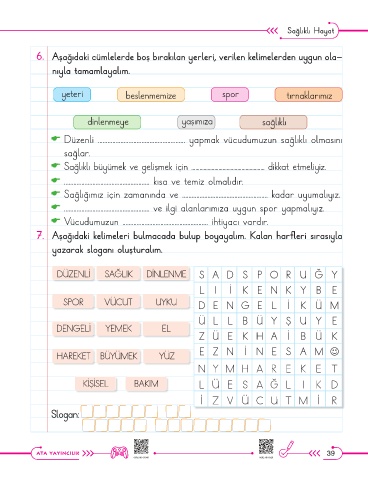 Sağlıklı Hayat
6. Aşağıdaki cümlelerde boş bırakılan yerleri, verilen kelimelerden uygun ola-
nıyla tamamlayalım.
yeteri beslenmemize spor tırnaklarımız
dinlenmeye yaşımıza sağlıklı
Düzenli ........................ yapmak vücudumuzun sağlıklı olmasını
sağlar.
Sağlıklı büyümek ve gelişmek için ........................ dikkat etmeliyiz.
........................ kısa ve temiz olmalıdır.
Sağlığımız için zamanında ve ........................ kadar uyumalıyız.
........................ ve ilgi alanlarımıza uygun spor yapmalıyız.
Vücudumuzun ........................ ihtiyacı vardır.
7. Aşağıdaki kelimeleri bulmacada bulup boyayalım. Kalan harfleri sırasıyla
yazarak sloganı oluşturalım.
DÜZENLİ SAĞLIK DİNLENME
SPOR VÜCUT UYKU
DENGELİ YEMEK EL
HAREKET BÜYÜMEK YÜZ
KİŞİSEL BAKIM
S A D S P O R U Ğ Y
L I İ K E N K Y B E
D E N G E L İ K Ü M
Ü L L B Ü Y Ş U Y E
Z Ü E K H A İ B Ü K
E Z N İ N E S A M ☺
N Y M H A R E K E T
L Ü E S A Ğ L I K D
İ Z V Ü C U T M İ R
Slogan:
ATA YAYINCILIK
39